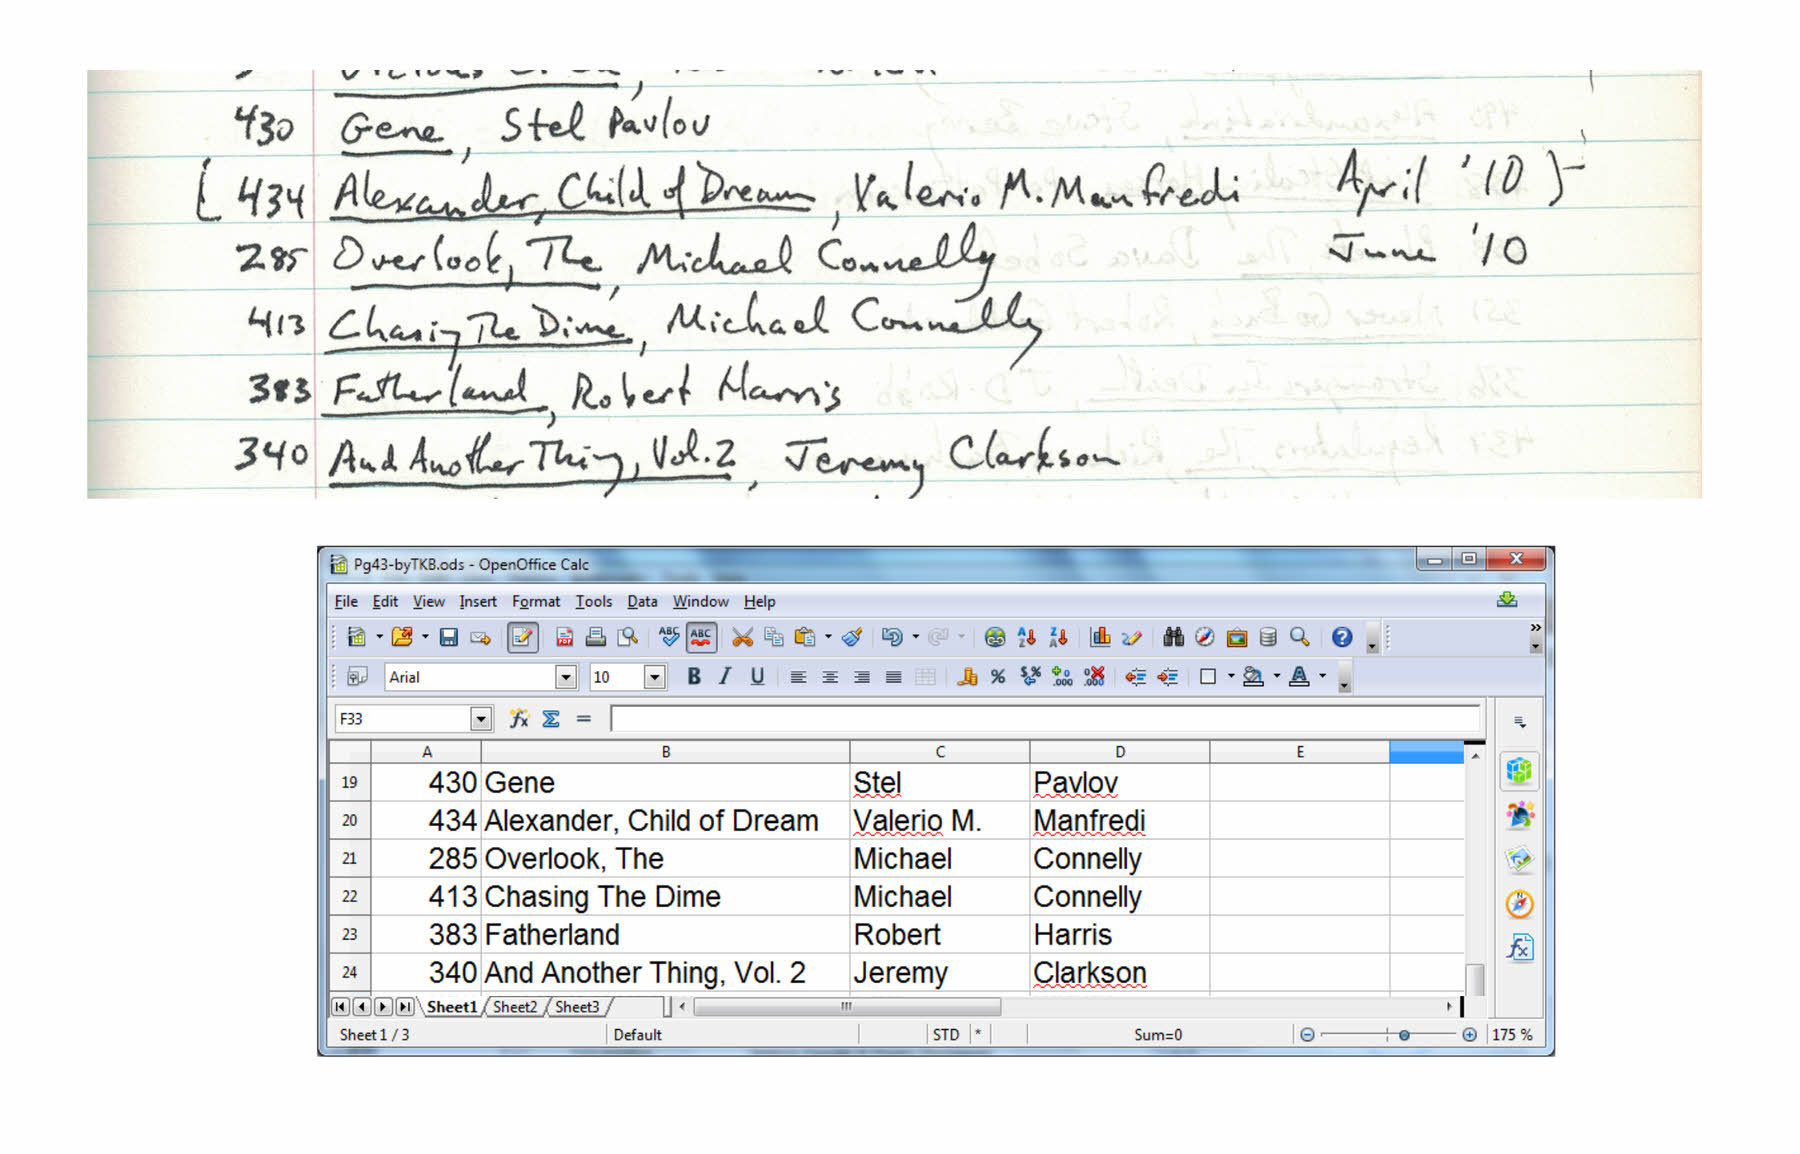 430 Gene, Stel Pavlov
434 Alexander, Child of Dream, Valerio M. Manfredi April '10
285 Overlook, The, Michael Connelly June '10
413 Chasing The Dime, Michael Connelly
383 Fatherland, Robert Harris
340 And Another Thing, Vol. 2, Jeremy Clarkson
Pg43-byTKB.ods - OpenOffice Calc
File Edit View Insert Format Tools Data Window Help
Arial 10 B I U
F33
A B C D E
19 430 Gene Stel Pavlov
20 434 Alexander, Child of Dream Valerio M. Manfredi
21 285 Overlook, The Michael Connelly
22 413 Chasing The Dime Michael Connelly
23 383 Fatherland Robert Harris
24 340 And Another Thing, Vol. 2 Jeremy Clarkson
Sheet1 Sheet2 Sheet3
Sheet 1 / 3 Default STD * Sum=0 175 %